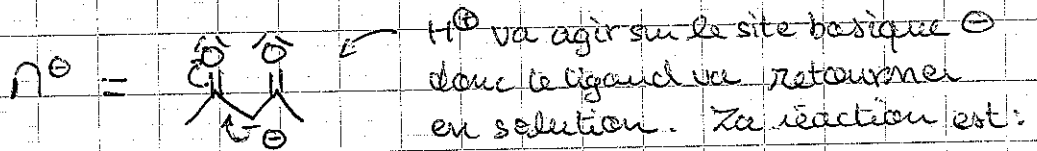 H⊕ va agir sur le site basique ⊖
n⊖ = O O donc le ligand va retourner
⊖ en solution. La réaction est :